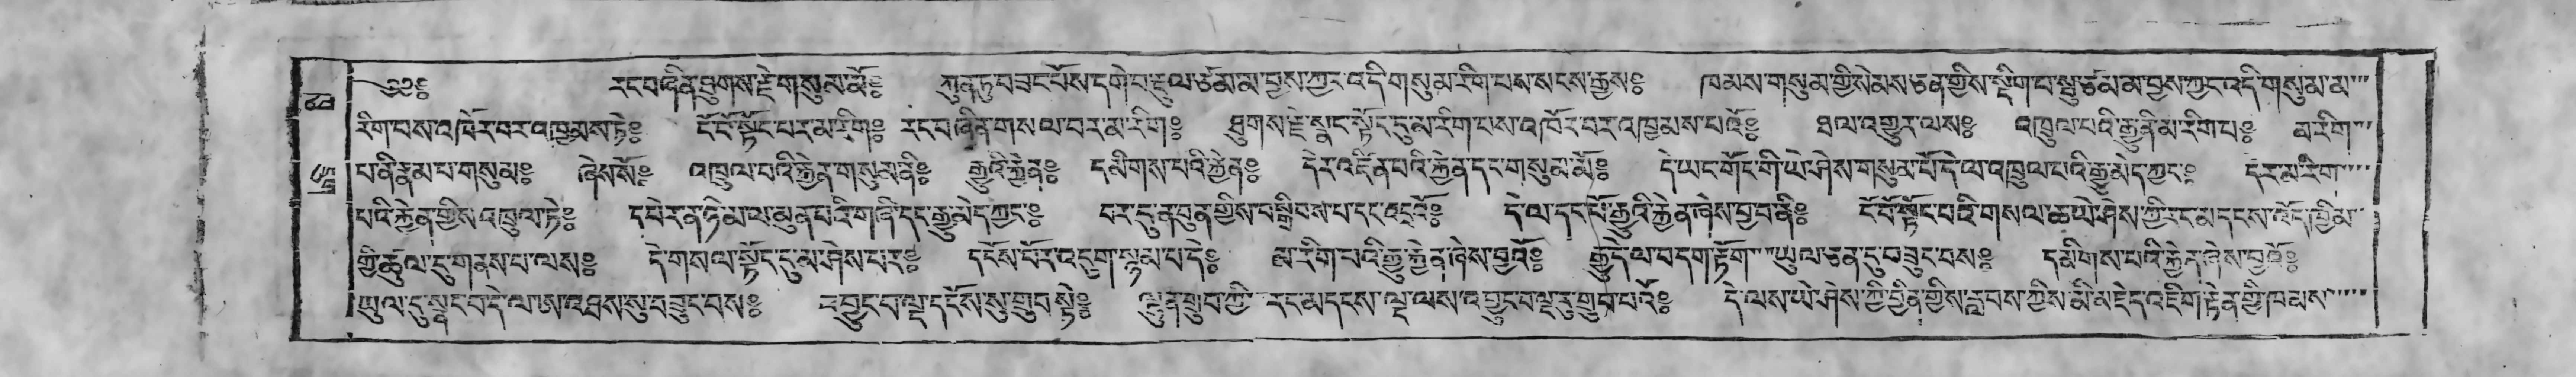 ༄༅༔ རང་བཞིན་ཐུགས་རྗེ་གསུམ་མོ༔ ཀུན་ཏུ་བཟང་པོས་དགེ་བ་རྡུལ་ཙམ་མ་བྱས་ཀྱང་འདི་གསུམ་རིག་པས་སངས་རྒྱས༔ ཁམས་གསུམ་གྱི་སེམས་ཅན་གྱིས་སྡིག་པ་སྤུ་ཙམ་མ་བྱས་ཀྱང་འདི་གསུམ་མ་
རིག་པས་འཁོར་བར་འཁྱམས་ཏེ༔ ངོ་བོ་སྟོང་པར་མ་རིག༔ རང་བཞིན་གསལ་བར་མ་རིག༔ ཐུགས་རྗེ་སྣང་སྟོང་དུ་མ་རིག་པས་འཁོར་བར་འཁྱམས་པའོ༔ ཐལ་འགྱུར་ལས༔ འཁྲུལ་པའི་རྒྱུ་ནི་མ་རིག་པ༔ མ་རིག་
པ་ནི་རྣམ་པ་གསུམ༔ ཞེས་སོ༔ འཁྲུལ་པའི་རྐྱེན་གསུམ་ནི༔ རྒྱུའི་རྐྱེན༔ དམིགས་པའི་རྐྱེན༔ དེར་འཛིན་པའི་རྐྱེན་དང་གསུམ་མོ༔ དེ་ཡང་གོང་གི་ཡེ་ཤེས་གསུམ་པོ་དེ་ལ་འཁྲུལ་པའི་རྒྱུ་མེད་ཀྱང༔ དེར་མ་རིག་
པའི་རྐྱེན་གྱིས་འཁྲུལ་ཏེ༔ དཔེར་ན་ཉི་མ་ལ་མུན་པའི་གཞི་དང་རྒྱུ་མེད་ཀྱང༔ བར་དུ་ན་བུན་གྱིས་བསྒྲིབས་པ་དང་འདྲའོ༔ དེ་ལ་དང་པོ་རྒྱུའི་རྐྱེན་ཞེས་བྱ་བ་ནི༔ ངོ་བོ་སྟོང་པའི་གསལ་ཆ་ཡེ་ཤེས་ཀྱི་རང་མདངས་འོད་ཁྱིམ་
གྱི་ཚུལ་དུ་གནས་པ་ལས༔ དེ་གསལ་སྟོང་དུ་མ་ཤེས་པར༔ དངོས་པོར་འདུག་སྙམ་པ་དེ༔ མ་རིག་པའི་རྒྱུ་རྐྱེན་ཞེས་བྱའོ༔ རྒྱུ་དེ་ལ་བདག་རྟོག་ཡུལ་ཅན་དུ་བཟུང་བས༔ དམིགས་པའི་རྐྱེན་ཞེས་བྱའོ༔
ཡུལ་དུ་སྣང་བ་དེ་ལ་ཨ་འཐས་སུ་བཟུང་བས༔ འབྱུང་བ་ལྔ་དངོས་སུ་གྲུབ་སྟེ༔ ལྷུན་གྲུབ་ཀྱི་རང་མདངས་ལྔ་ལས་འབྱུང་བ་ལྔ་རུ་གྲུབ་པའོ༔ དེ་ལས་ཡེ་ཤེས་ཀྱི་བྱིན་གྱིས་རླབས་ཀྱིས་མི་མཇེད་འཇིག་རྟེན་གྱི་ཁམས་